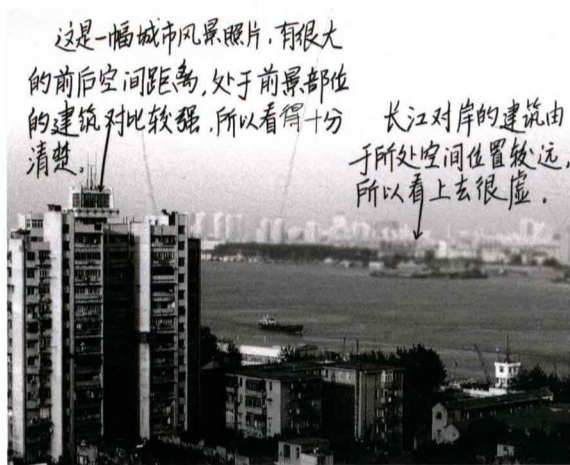 这是一幅城市风景照片，有很大
的前后空间距离，处于前景部位
的建筑对比较强，所以看得十分
清楚。
长江对岸的建筑由
于所处空间位置较远，
所以看上去很虚．